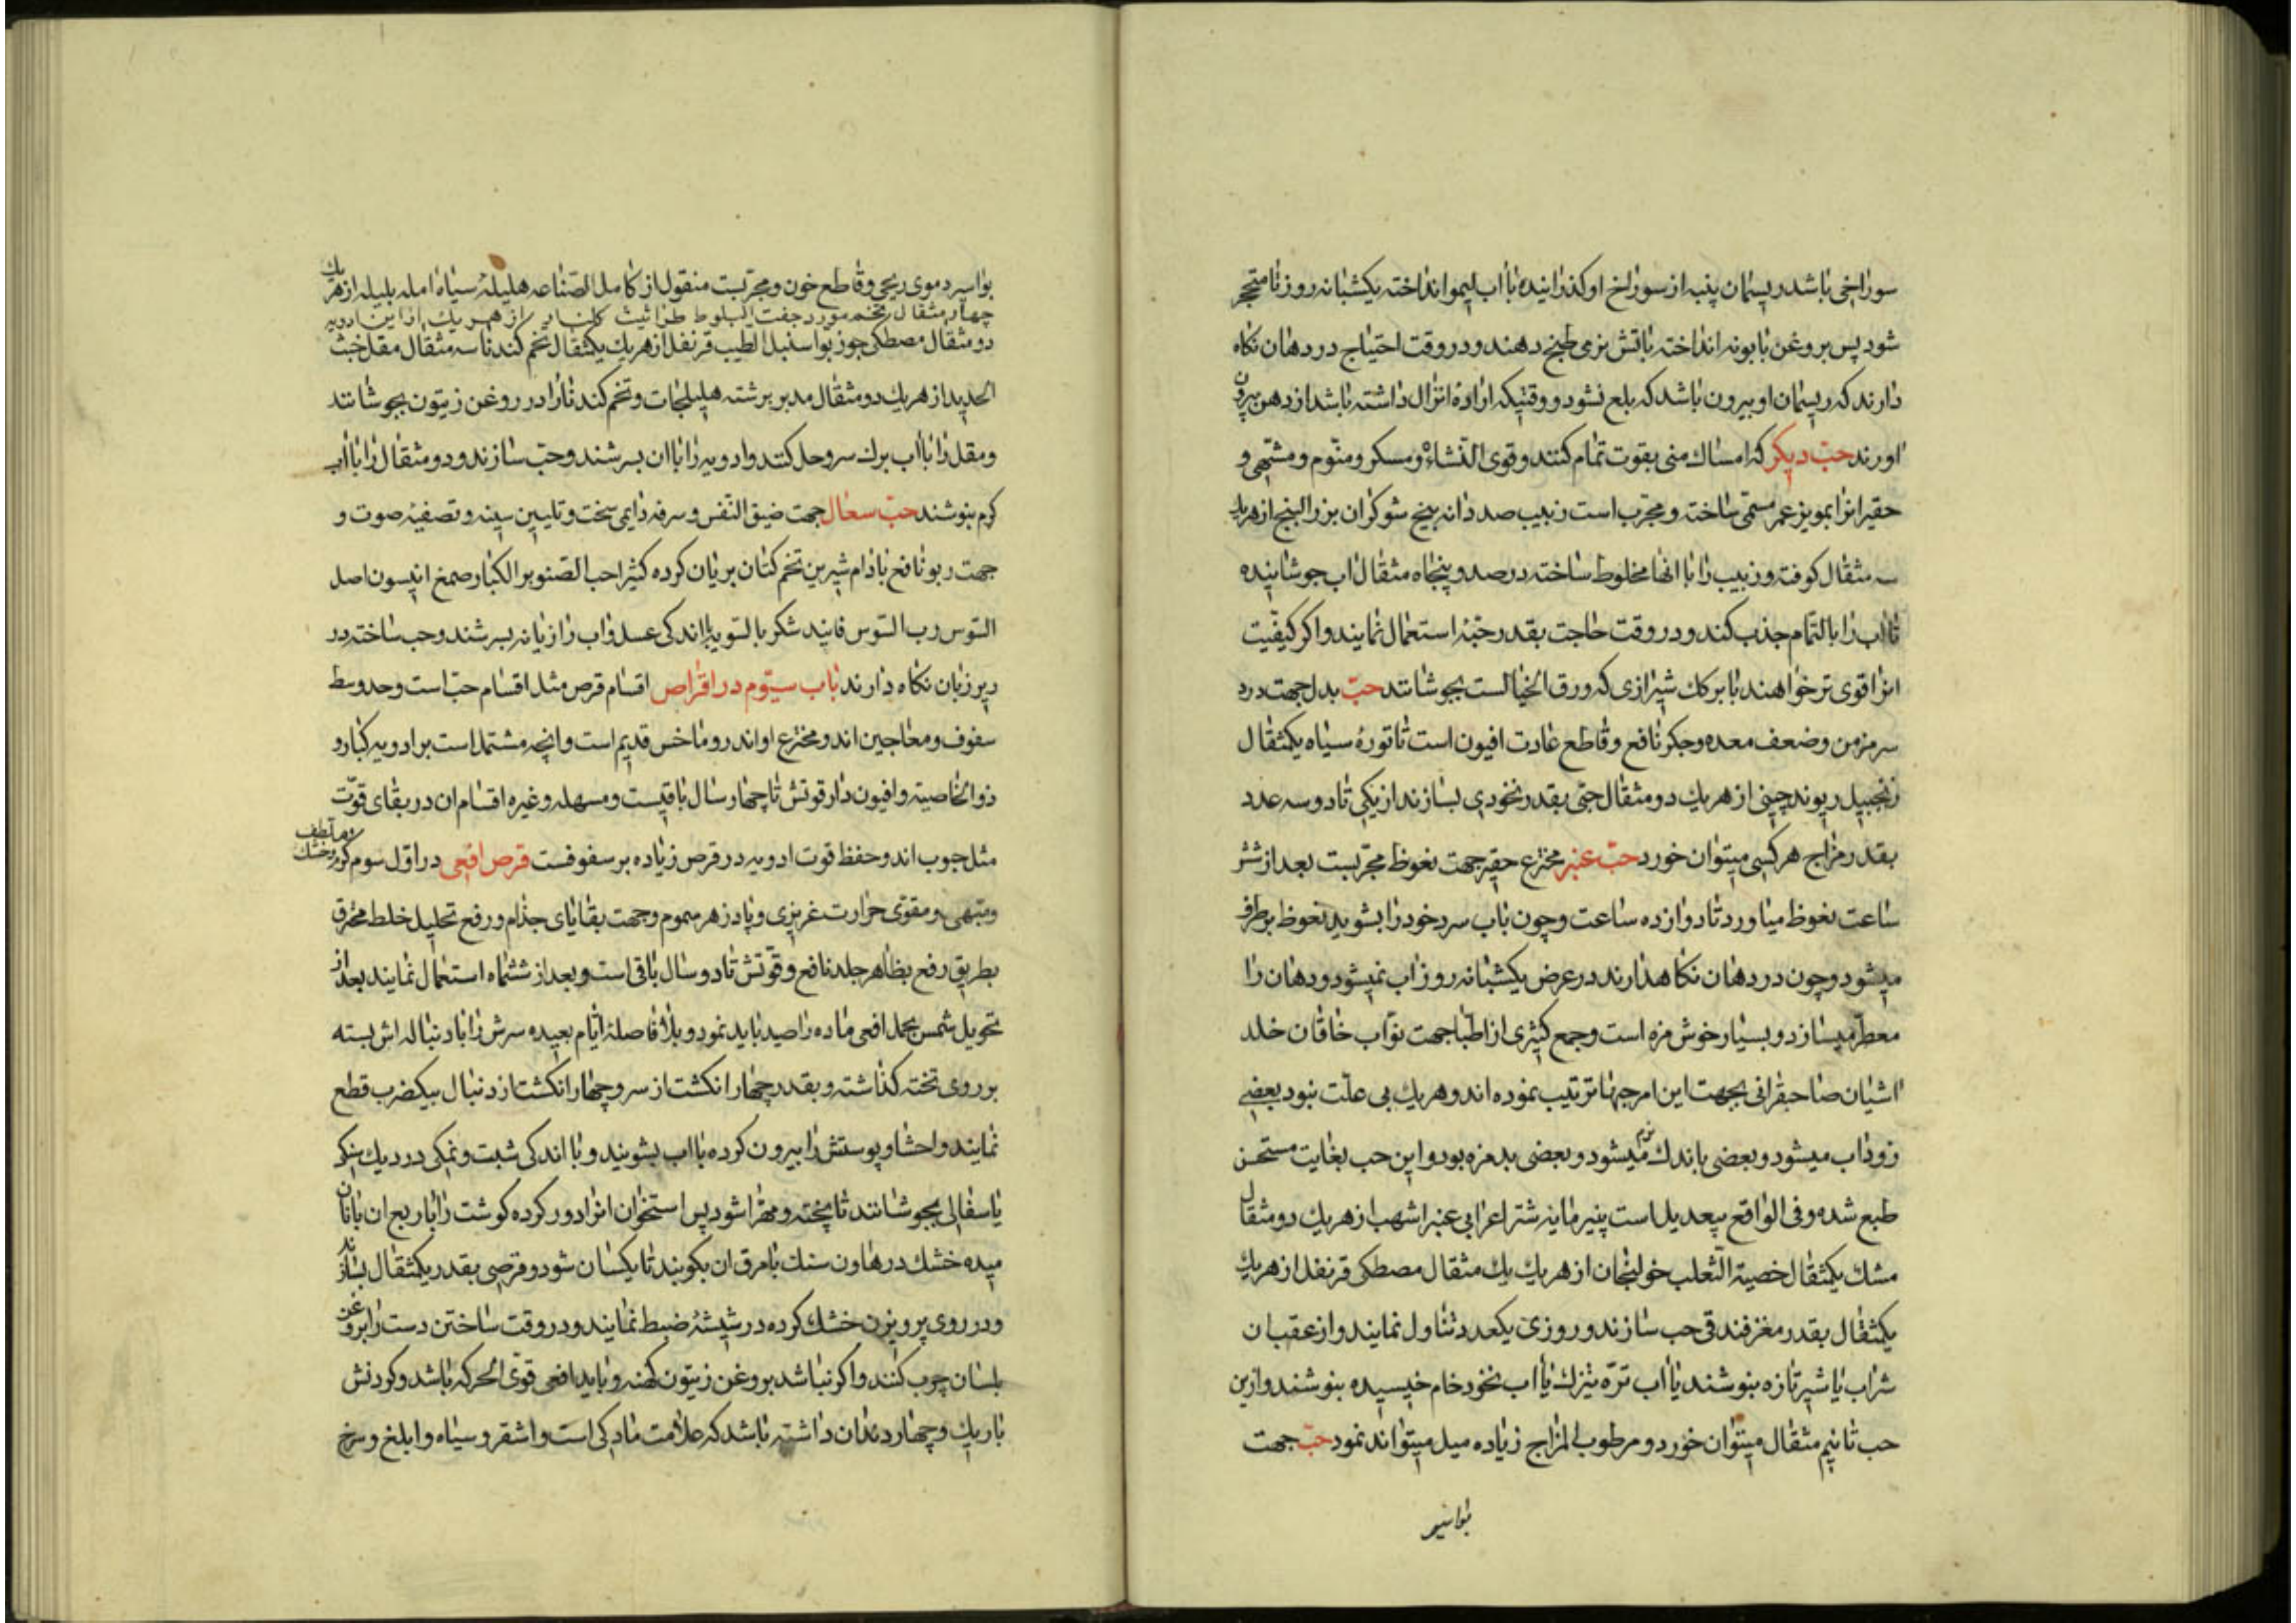 سوراخی باشد ریسمان پنبه از سوراخ او کذرانیده با اب لیمو انداخته یکشبانه روز تا متحجر
شود پس بروغن بابونه انداخته باتش نرمی طبخ دهند و در وقت احتیاج در دهان نکاه
دارند که ریسمان او بیرون باشد که بلع نشود و وقتیکه ارادهٔ انزال داشته باشد از دهن بیرون
اورند حبّ دیکر که امساك منی بقوت تمام کنند و قوی النشاء و مسکر و منوّم و مشتهی و
حقیر انرا بمویز عمر مسمّی ساخته و مجرب است زبیب صد دانه بیخ شوکران بزر البنج از هریك
سه مثقال کوفته و زبیب را با انها مخلوط ساخته در صد و پنجاه مثقال اب جوشانیده
تا اب را بالتمام جذب کند و در وقت حاجت بقدر حبّهٔ استعمال نمایند و اکر کیفیت
انرا قوی تر خواهند با برك کنك شیرازی که ورق الخیالست بجوشانند حبّ بدل جهت درد
سر مزمن و ضعف معده و جکر نافع و قاطع عادت افیون است تاتورهٔ سیاه یکمثقال
زنجبیل ریوند چینی از هریك دو مثقال حبّی بقدر نخودی بسازند از یکی تا دو سه عدد
بقدر مزاج هر کسی میتوان خورد حبّ عنبر مخترع حقیر جهت نعوظ مجربست بعد از شش
ساعت نعوظ میاورد تا دوازده ساعت و چون باب سرد خود را بشوید نعوظ برطرف
میشود و چون در دهان نکاهدارند در عرض یکشبانه روز اب نمیشود و دهان را
معطر میسازد و بسیار خوش مزه است و جمع کثیری از اطبا جهت نوّاب خاقان خلد
اشیان صاحبقرانی بجهت این امر حبها ترتیب نموده اند و هریك بی علّت نبود بعضی
زود اب میشود و بعضی باندك نرم میشود و بعضی بدمزه بود و این حب بغایت مستحسن
طبع شده و فی الواقع بیعدیل است پنیر مایهٔ شتر اعرابی عنبر اشهب از هریك دو مثقال
مشك یکمثقال خصیة الثعلب خولنجان از هریك یك مثقال مصطکی قرنفل از هریك
یکمثقال بقدر مغز فندقی حب سازند و روزی یکعدد تناول نمایند و از عقب ان
شراب یا شیر تازه بنوشند یا اب ترّه تیزك یا اب نخود خام خیسیده بنوشند و ازین
حب تا نیم مثقال میتوان خورد و مرطوب المزاج زیاده میل میتواند نمود حبّ جهت
بواسیر
بواسیر دموی ریحی و قاطع خون و مجربست منقول از کامل الصناعه هلیلهٔ سیاه امله بلیله از هر یك
چهار مثقال تخم مورد جفت البلوط طراثیث کلنار از هر یك از این ادویه
دو مثقال مصطکی جوز بوا سنبل الطیب قرنفل از هریك یکمثقال تخم کندنا سه مثقال مقل خبث
الحدید از هریك دو مثقال مدبر برشته هلیلجات و تخم کندنا را در روغن زیتون بجوشانند
و مقل را با اب برك سرو حل کنند و ادویه را با ان بسرشند و حبّ سازند و دو مثقال را با اب
کرم بنوشند حبّ سعال جهت ضیق النفس و سرفه دایمی سخت و تلیین سینه و تصفیهٔ صوت و
جهت ربو نافع بادام شیرین تخم کتان بریان کرده کثیرا حب الصنوبر الکبار صمغ انیسون اصل
السّوس رب السّوس فانید شکر بالسّویه با اندکی عسل و اب رازیانه بسرشند و حب ساخته در
زیر زبان نکاه دارند باب سیّوم در اقراص اقسام قرص مثل اقسام حبّ است و حد وسط
سفوف و معاجین اند و مخترع او اندروماخس قدیم است و انچه مشتمل است بر ادویه کبار و
ذو الخاصیته و افیون دار قوتش تا چهار سال باقیست و مسهله و غیره اقسام ان در بقای قوّت
مثل حبوب اند و حفظ قوت ادویه در قرص زیاده بر سفوفست قرص افعی در اوّل سوم کرم و خشك
و ملطف
و مشهی و مقوّی حرارت غریزی و پادزهر سموم و جهت بقایای جذام و رفع تحلیل خلط محرق
بطریق رفع بظاهر جلد نافع و قوّتش تا دو سال باقی است و بعد از ششماه استعمال نمایند بعد از
تحویل شمس بحمل افعی ماده را صید باید نمود و بلا فاصلهٔ ایام بعیده سرش را با دنباله اش بسته
بر روی تخته کذاشته و بقدر چهار انکشت از سر و چهار انکشت از دنبال بیکضرب قطع
نمایند و احشا و پوستش را بیرون کرده با اب بشویند و با اندکی شبت و نمکی در دیك سنکی
یا سفالی بجوشانند تا پخته و مهرّا شود پس استخوان انرا دور کرده کوشت را با ربع ان با نان
میده خشك در هاون سنك با مرق ان بکوبند تا یکسان شود و قرصی بقدر یکمثقال بسازند
و در روی پرویزن خشك کرده در شیشهٔ ضبط نمایند و در وقت ساختن دست را بروغن
بلسان چرب کنند و اکر نباشد بروغن زیتون کهنه و باید افعی قوّی الحرکه باشد و کردنش
باریك و چهار دندان داشته باشد که علامت مادکی است و اشقر و سیاه و ابلغ و سرخ